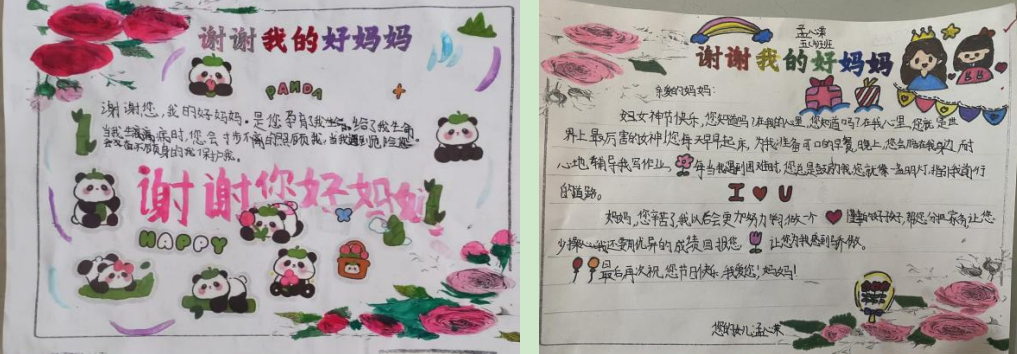 谢谢我的好妈妈
PANDA
谢谢您,我的好妈妈。是您孕育了我生命,给了我生命
当我生病时,您会寸步不离的照顾我,当我遇到危险您
会奋不顾身的我保护我。
谢谢你好妈妈
HAPPY
孟心
五 班
谢谢我的好妈妈
亲爱的妈妈:
妇女神节快乐,您知道吗?在我的心里,您知道吗?在我心里,您就是世
界上最厉害的女神!您每天早早起床,为我准备可口的早餐,晚上,您会陪在我身边,耐
心地辅导我写作业。每当我遇到困难时,您总是鼓励我,您就像一盏明灯,指引我前行
的道路。
I U
妈妈,您辛苦了我以后会更加努力学习做一个 的好孩子,帮您分担家务,让您
少操心,我还要用优异的成绩回报您 让您为我感到骄傲。
最后再次祝您节日快乐,我爱您!妈妈!
您的女儿孟心